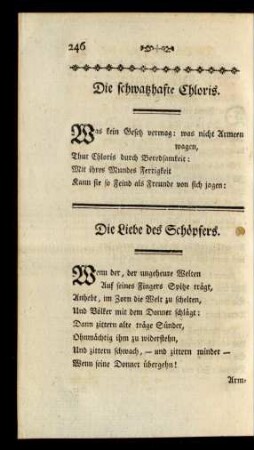 246
Die schwatzhafte Chloris.
Was kein Gesetz vermag: was nicht Armeen
wagen,
Thut Chloris durch Beredsamkeit:
Mit ihres Mundes Fertigkeit
Kann sie so Feind als Freunde von sich jagen:
Die Liebe des Schöpfers.
Wenn der, der ungeheure Welten
Auf seines Fingers Spitze trägt,
Anhebt, im Zorn die Welt zu schelten,
Und Völker mit dem Donner schlägt:
Dann zittern alte träge Sünder,
Ohnmächtig ihm zu widerstehn,
Und zittern schwach, — und zittern minder —
Wenn seine Donner übergehn!
Arm-